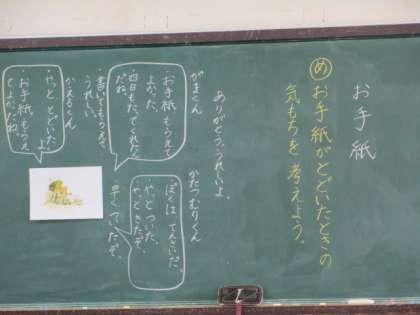 お手紙
め お手紙がとどいたときの
気もちを考えよう。
ありがとう、うれしいよ。
がまくん
・お手紙もらえて
よかった。
・四日もたってくれた
だね。
・書いてもらえて
うれしい。
かえるくん
・やっととどいたよ
・お手紙もらえ
てよかったね。
かたつむりくん
ぼくは てんさいだ。
・やっとついた。
・やっときたぞ。
早くていたぞ。